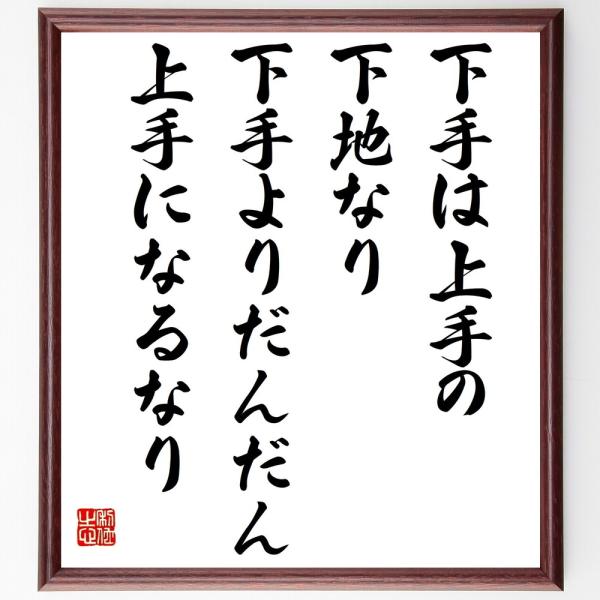 下手は上手の
下地なり
下手よりだんだん
上手になるなり